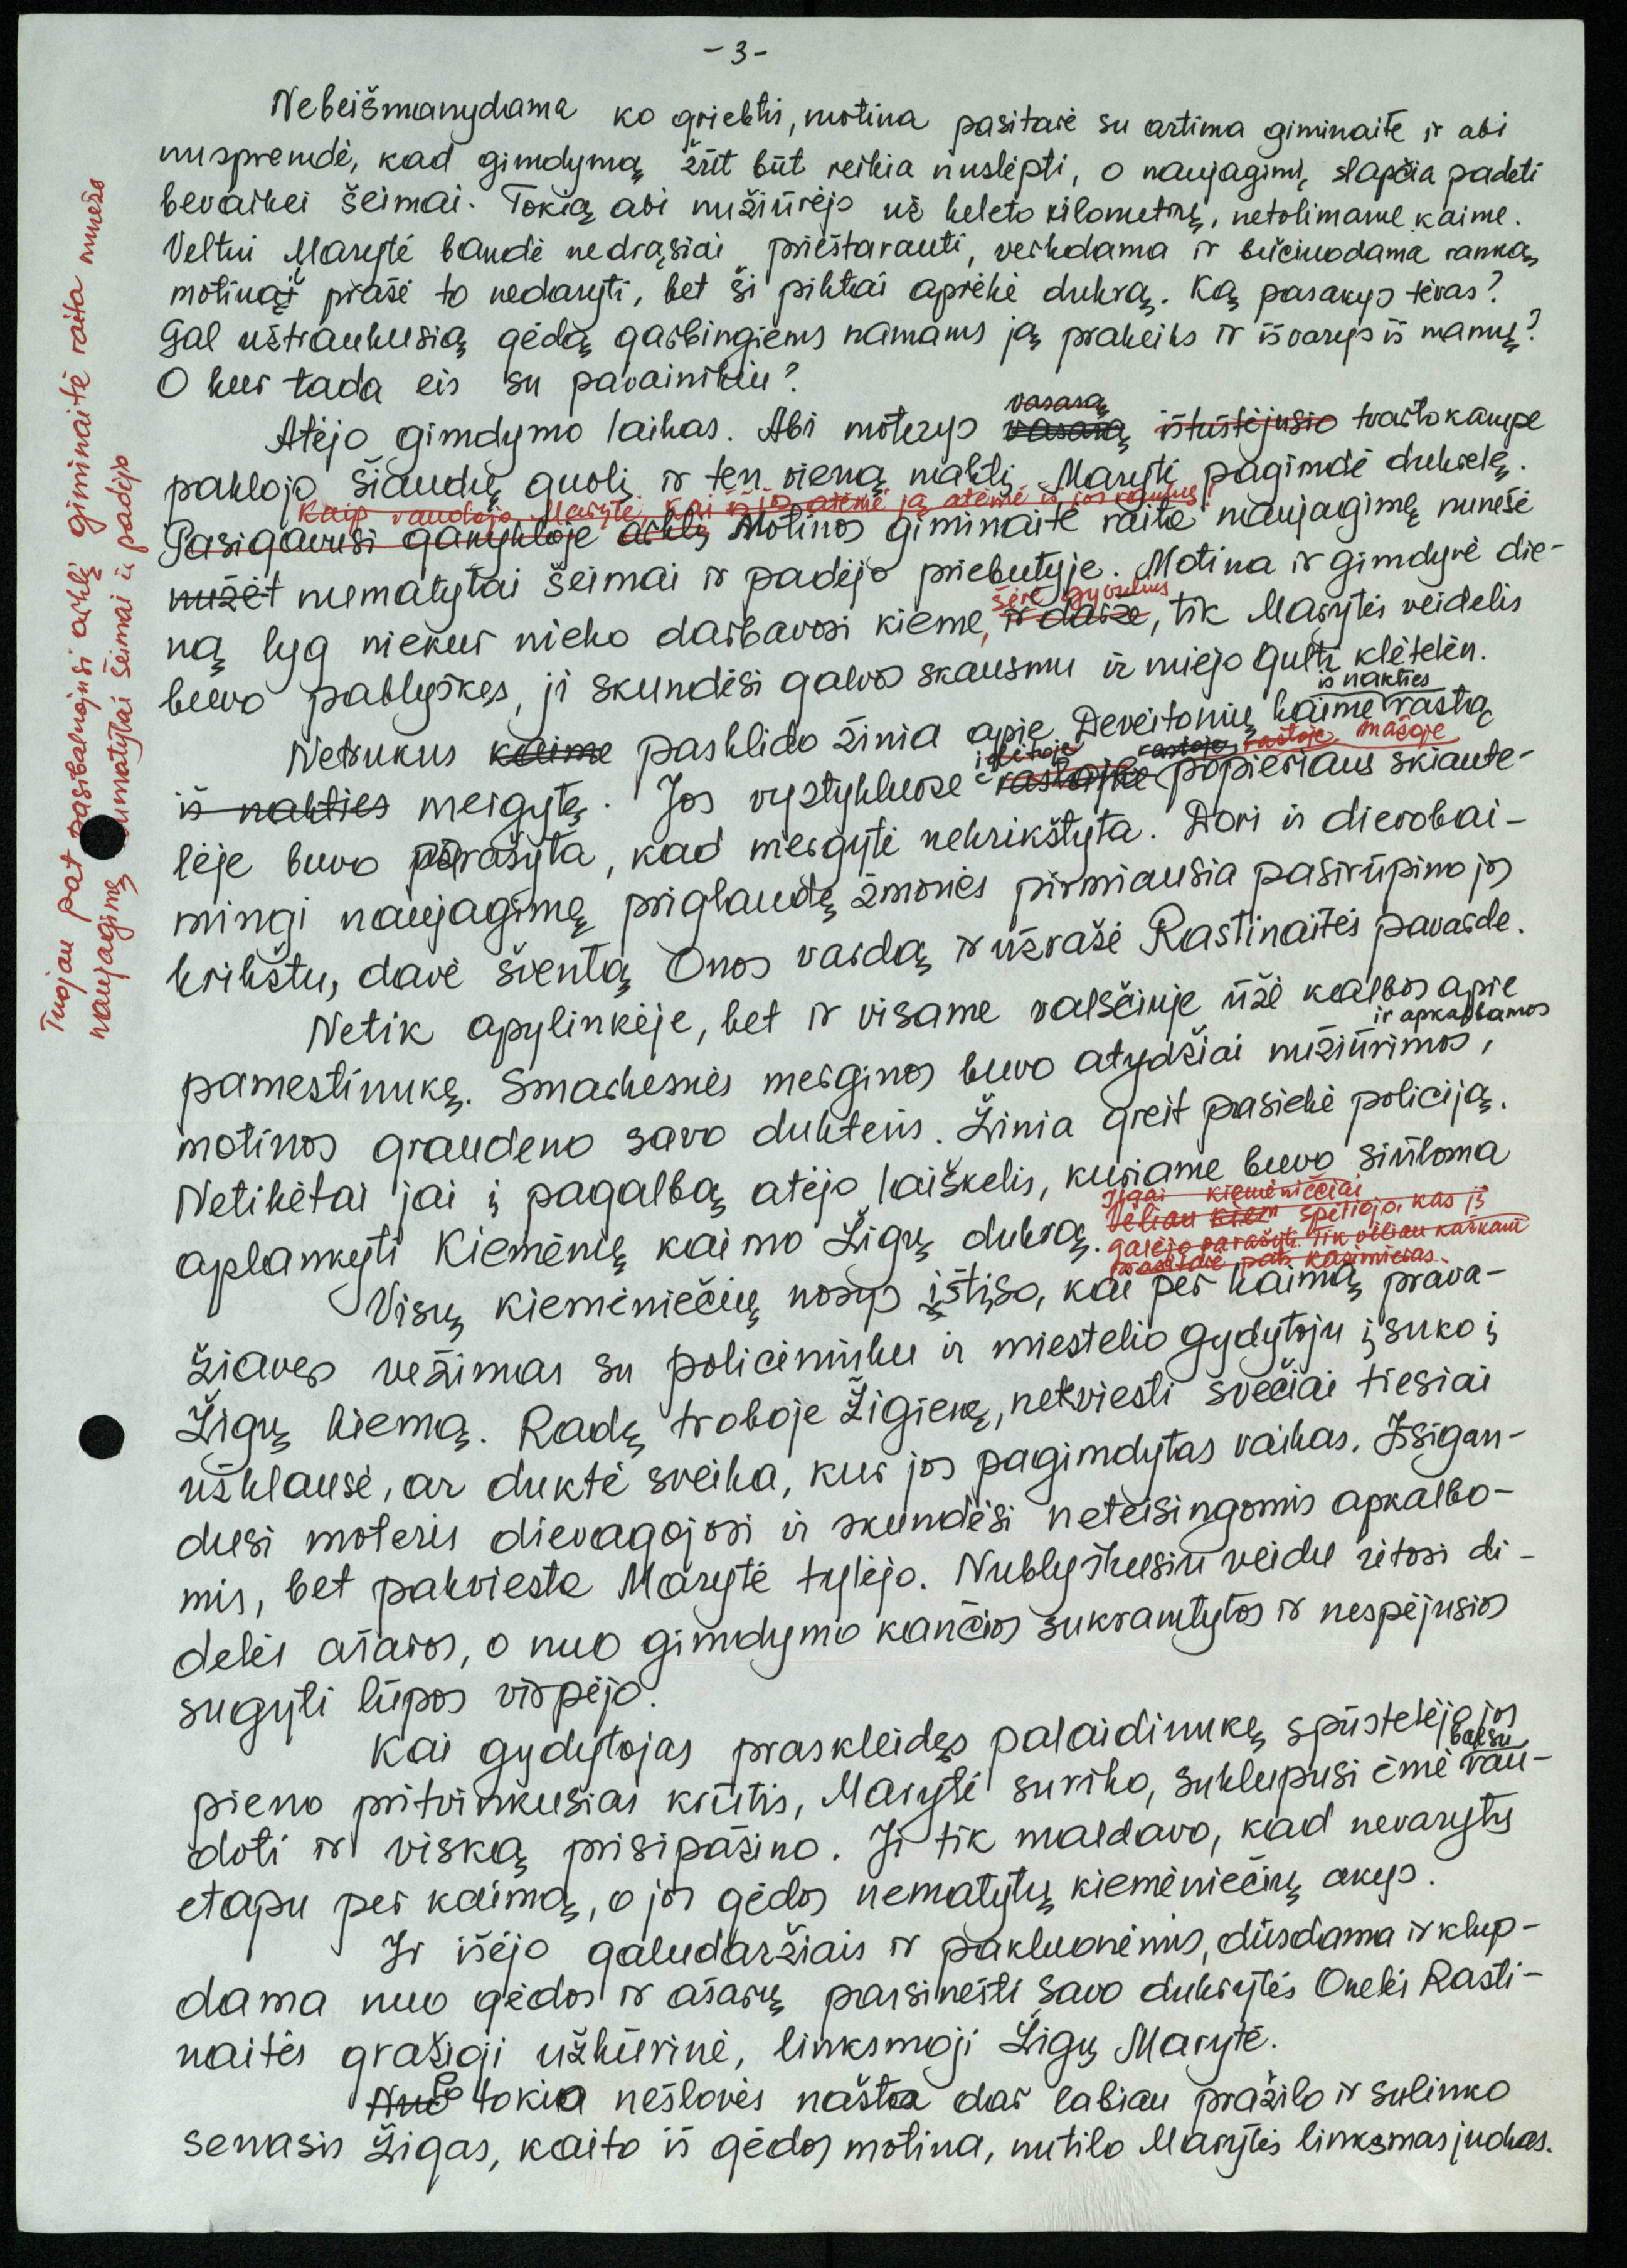 - 3 -
Nebeišmanydama ko griebtis, motina pasitarė su artima giminaite ir abi
nusprendė, kad gimdymą žūt būt reikia nuslėpti, o naujagimį slapčia padėti
bevaikei šeimai. Tokią abi nužiūrėjo už keleto kilometrų, netolimame kaime.
Veltui Marytė bandė nedrąsiai prieštarauti, verkdama ir bučiuodama ranką
motinai prašė to nedaryti, bet ši piktai aprėkė dukrą. Ką pasakys tėvas?
Gal užtraukusią gėdą garbingiems namams ją prakeiks ir išvarys iš namų?
O kur tada eis su pavainikiu?
vasarą
Atėjo gimdymo laikas. Abi moterys vasarą ištuštėjusio tvarto kampe
paklojo šiaudų guolį ir ten vieną naktį Marytė pagimdė dukrelę.
Kaip raudojo Marytė, kai iš jos atėmė ją atėmė iš jos rankų!
Pasigavusi ganykloje arklį Motinos giminaitė raita naujagimę nunešė
nužiūt numatytai šeimai ir padėjo priebutyje. Motina ir gimdyvė die-
šėrė gyvulius
ną lyg niekur nieko darbavosi kieme, ir darže, tik Marytės veidelis
buvo pablyškęs, ji skundėsi galvos skausmu ir miego gulti klėtelėn.
iš nakties
Netrukus kaime pasklido žinia apie Deveitonių kaime rastą
įdėtoje rastoje rastoje mažoje
iš nakties mergytę. Jos vystykluose rastoje popieriaus skiaute-
lėje buvo parašyta, kad mergytė nekrikštyta. Dori ir dievobai-
mingi naujagimę priglaudę žmonės pirmiausia pasirūpino jos
krikštu, davė šventą Onos vardą ir užrašė Rastinaitės pavarde.
Netik apylinkėje, bet ir visame valsčiuje ūžė kalbos apie
ir apkalbamos
pamestinukę. Smarkesnės merginos buvo atydžiai nužiūrimos,
motinos graudeno savo dukteris. Žinia greit pasiekė policiją.
Netikėtai jai į pagalbą atėjo laiškelis, kuriame buvo siūloma
aplankyti Kiemėnų kaimo Žigų dukrą.
Ilgai kiemėniečiai
Vėliau kiem spėliojo, kas jį
galėjo parašyti. Tik vėliau kažkam
prasitarė pats Kazimieras.
Visų kiemėniečių nosys ištįso, kai per kaimą prava-
žiavęs vežimas su policininku ir miestelio gydytoju įsuko į
Žigų kiemą. Radę troboje Žigienę, nekviesti svečiai tiesiai
užklausė, ar duktė sveika, kur jos pagimdytas vaikas. Išsigan-
dusi moteris dievagojosi ir skundėsi neteisingomis apkalbo-
mis, bet pakviesta Marytė tylėjo. Nublyškusiu veidu ritosi di-
delės ašaros, o nuo gimdymo kančios sukramtytos ir nespėjusios
sugyti lūpos virpėjo.
Kai gydytojas praskleidęs palaidinukę spūstelėjo jos
balsu
pieno pritvinkusias krūtis, Marytė suriko, suklupusi ėmė rau-
doti ir viską prisipažino. Ji tik maldavo, kad nevarytų
etapu per kaimą, o jos gėdos nematytų kiemėniečių akys.
Ir išėjo galudaržiais ir pakluonėmis, dūsdama ir klup-
dama nuo gėdos ir ašarų parsinešti savo dukrytės Onelės Rasti-
naitės gražioji užkūrinė, linksmoji Žigų Marytė.
Nuo Po tokia nešlovės našta dar labiau pražilo ir sulinko
senasis Žigas, kaito iš gėdos motina, nutilo Marytės linksmas juokas.
Tuojau pat pasibalnojusi arklį giminaitė raita nunešė
naujagimę numatytai šeimai ir padėjo